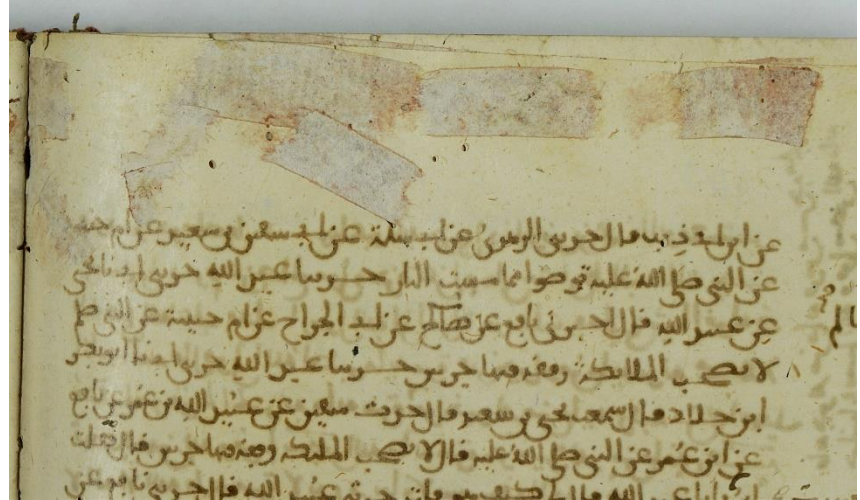 عن ابن ابى ذيب قال حدثنى الزهرى عن ابى سلمة عن ابى سفين بن سعيد عن ام حبيبة
عن النبى صلى الله عليه توضوا مما مست النار حدثنا عبد الله حدثنى ابى نا يحيى
عن عبيد الله قال اخبرنى نافع عن سالم عن ابى الجراح عن ام حبيبة عن النبى صلى
لا تصحب الملائكة رفقة فيها جرس حدثنا عبد الله حدثنى ابى نا ابو بكر
ابن خلاد قال سمعت يحيى بن سعيد قال حدثت سفين عن عبيد الله بن عمر عن نافع
عن ابن عمر عن النبى صلى الله عليه قال لا تصحب الملائكة رفقة فيها جرس قال فقلت
عبيد الله قال حدثنى نافع عن